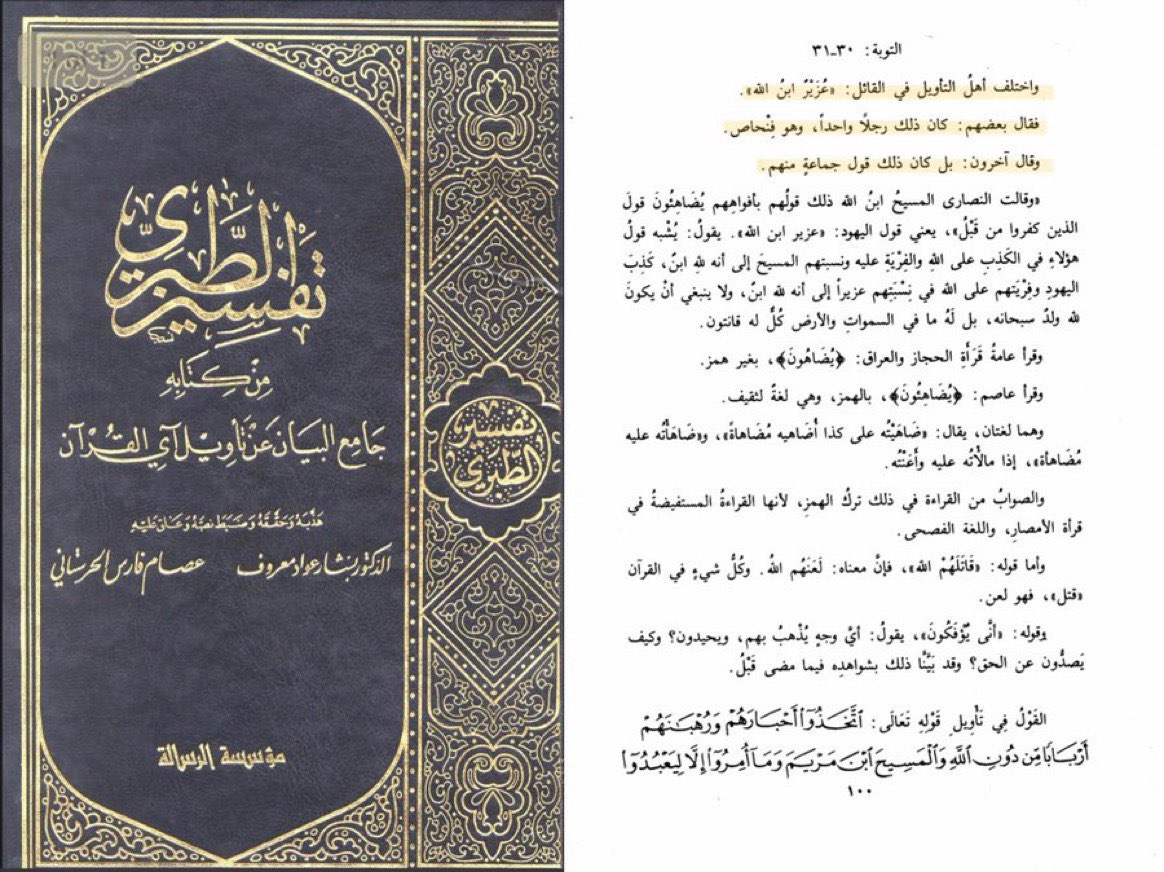 تفسير الطبري
من كتابه
جامع البيان عن تأويل آي القرآن
هذبه وحققه وضبط نصه وعلق عليه
الدكتور بشار عواد معروف عصام فارس الحرستاني
مؤسسة الرسالة
تفسير
الطبري
التوبة: ٣٠-٣١
واختلف أهلُ التأويل في القائل: «عُزَيْرٌ ابنُ الله».
فقال بعضهم: كان ذلك رجلًا واحداً، وهو فِنْحاص.
وقال آخرون: بل كان ذلك قول جماعةٍ منهم.
«وقالت النصارى المسيحُ ابنُ الله ذلك قولُهم بأفواهِهم يُضَاهِئُونَ قولَ
الذين كفروا من قَبْلُ»، يعني قول اليهود: «عزير ابن الله». يقولُ: يُشْبه قولُ
هؤلاءِ في الكَذِبِ على اللهِ والفِرْيَةِ عليه ونسبتهم المسيحَ إلى أنه للهِ ابنٌ، كَذِبَ
اليهودِ وفِرْيَتَهم على الله في نِسْبَتِهم عزيراً إلى أنه لله ابنٌ، ولا ينبغي أنْ يكونَ
لله ولدٌ سبحانه، بل لَهُ ما في السمواتِ والأرض كُلٌّ له قانتون.
وقرأ عامةُ قَرَأَةِ الحجاز والعراق: ﴿يُضَاهُونَ﴾، بغير همز.
وقرأ عاصم: ﴿يُضَاهِئُونَ﴾، بالهمز، وهي لغةٌ لثقيف.
وهما لغتان، يقال: «ضَاهَيْتُه على كذا أُضَاهيه مُضَاهاةً»، و«ضَاهَأْتُه عليه
مُضَاهأة»، إذا مالأْتُه عليه وأَعَنْتُه.
والصوابُ من القراءة في ذلك تركُ الهمزِ، لأنها القراءةُ المستفيضةُ في
قرأة الأمصارِ، واللغة الفصحى.
وأما قوله: «قَاتَلَهُمْ الله»، فإنَّ معناه: لَعَنَهُم اللهُ. وكُلُّ شيءٍ في القرآن
«قتل»، فهو لعن.
وقوله: «أنَّى يُؤْفَكُونَ»، يقولُ: أيَّ وجهٍ يُذْهبُ بهم، ويحيدون؟ وكيف
يَصدُّون عن الحق؟ وقد بَيَّنَّا ذلك بشواهدِه فيما مضى قَبْلُ.
القَوْلُ فِي تَأْوِيلِ قَوْلِهِ تَعَالَى: ٱتَّخَذُوٓا۟ أَحْبَارَهُمْ وَرُهْبَٰنَهُمْ
أَرْبَابًا مِّن دُونِ ٱللَّهِ وَٱلْمَسِيحَ ٱبْنَ مَرْيَمَ وَمَآ أُمِرُوٓا۟ إِلَّا لِيَعْبُدُوٓا۟
١٠٠